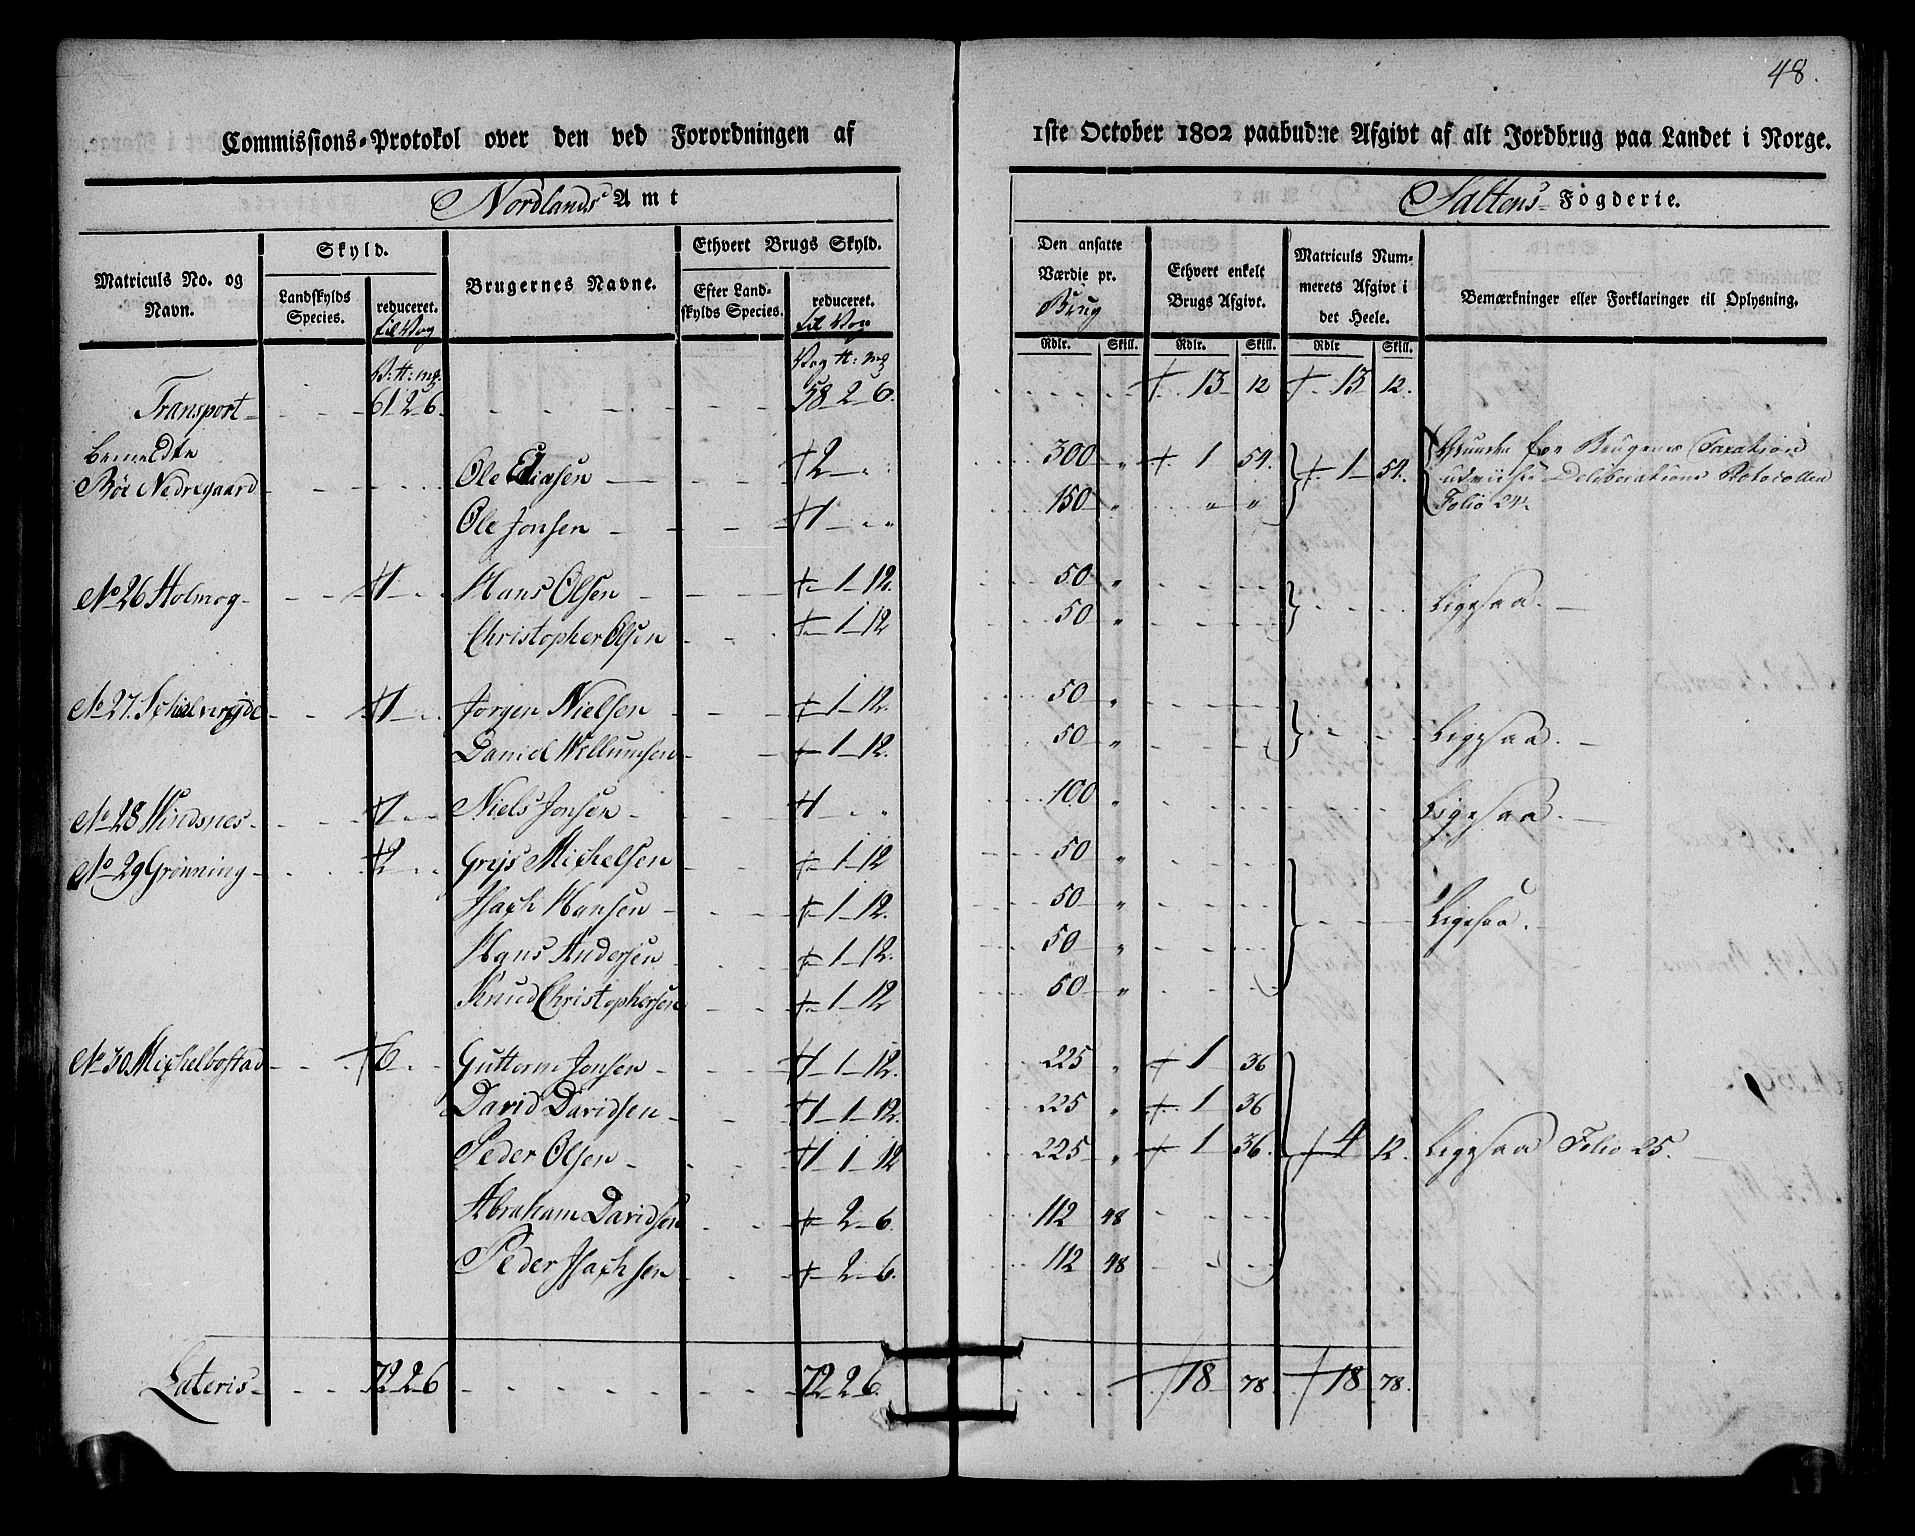 48.
Commissions-Protokol over den ved Forordningen af 1ste October 1802 paabudne Afgivt af alt Jordbrug paa Landet i Norge.
Nordlands Amt Saltens Fögderie.
Matriculs No. og Navn. Skyld. Landskylds Species. reduceret. til Vog Brugernes Navne. Ethvert Brugs Skyld. Efter Landskylds Species. reduceret. til Vog Den ansatte Værdie pr. Brug Ethvert enkelt Brugs Afgivt. Matriculs Nummerets Afgivt i det Heele. Bemærkninger eller Forklaringer til Oplysning.
Rdlr. Skill. Rdlr. Skill. Rdlr Skill.
V: tt: mg. Vog tt: mg
Transport 61 2 6 58 2 6. 13 12 13 12.
bemeldte
Böe Nedregaard Ole Eliasen 2 300 " 1 54. 1 54. Grunden for Brugenes Taxation
udviiser Deliberations Protocollen
Ole Jonsen 1 150 " " " Folio 24.
No 26 Holmog 1 Hans Olsen 1 12. 50 " Ligesaa.
Christopher Olsen 1 12 50 "
No 27. 1 Jörgen Nielsen 1 12. 50 "
Daniel Willumsen 1 12. 50 " Ligesaa.
No 28 Vindsnes 1 Niels Jonsen 1 100 " Ligesaa.
No 29 Grönning 2 Grejs Michelsen 1 12 50 "
Isach Hansen 1 12. 50 " Ligesaa.
Hans Andersen 1 12. 50 "
Knud Christophersen 1 12 50 "
No 30 Michelbostad 6 Guttorm Jonsen 1 1 12. 225 " 1 36
David Davidsen 1 1 12. 225 " 1 36
Peder Olsen 1 1 12 225 " 1 36. 4 12. Ligesaa Folio 25.
Abraham Davidsen 2 6. 112 48
Peder Isachsen 2 6. 112 48
Lateris 72 2 6 72 2 6. 18 78. 18 78.